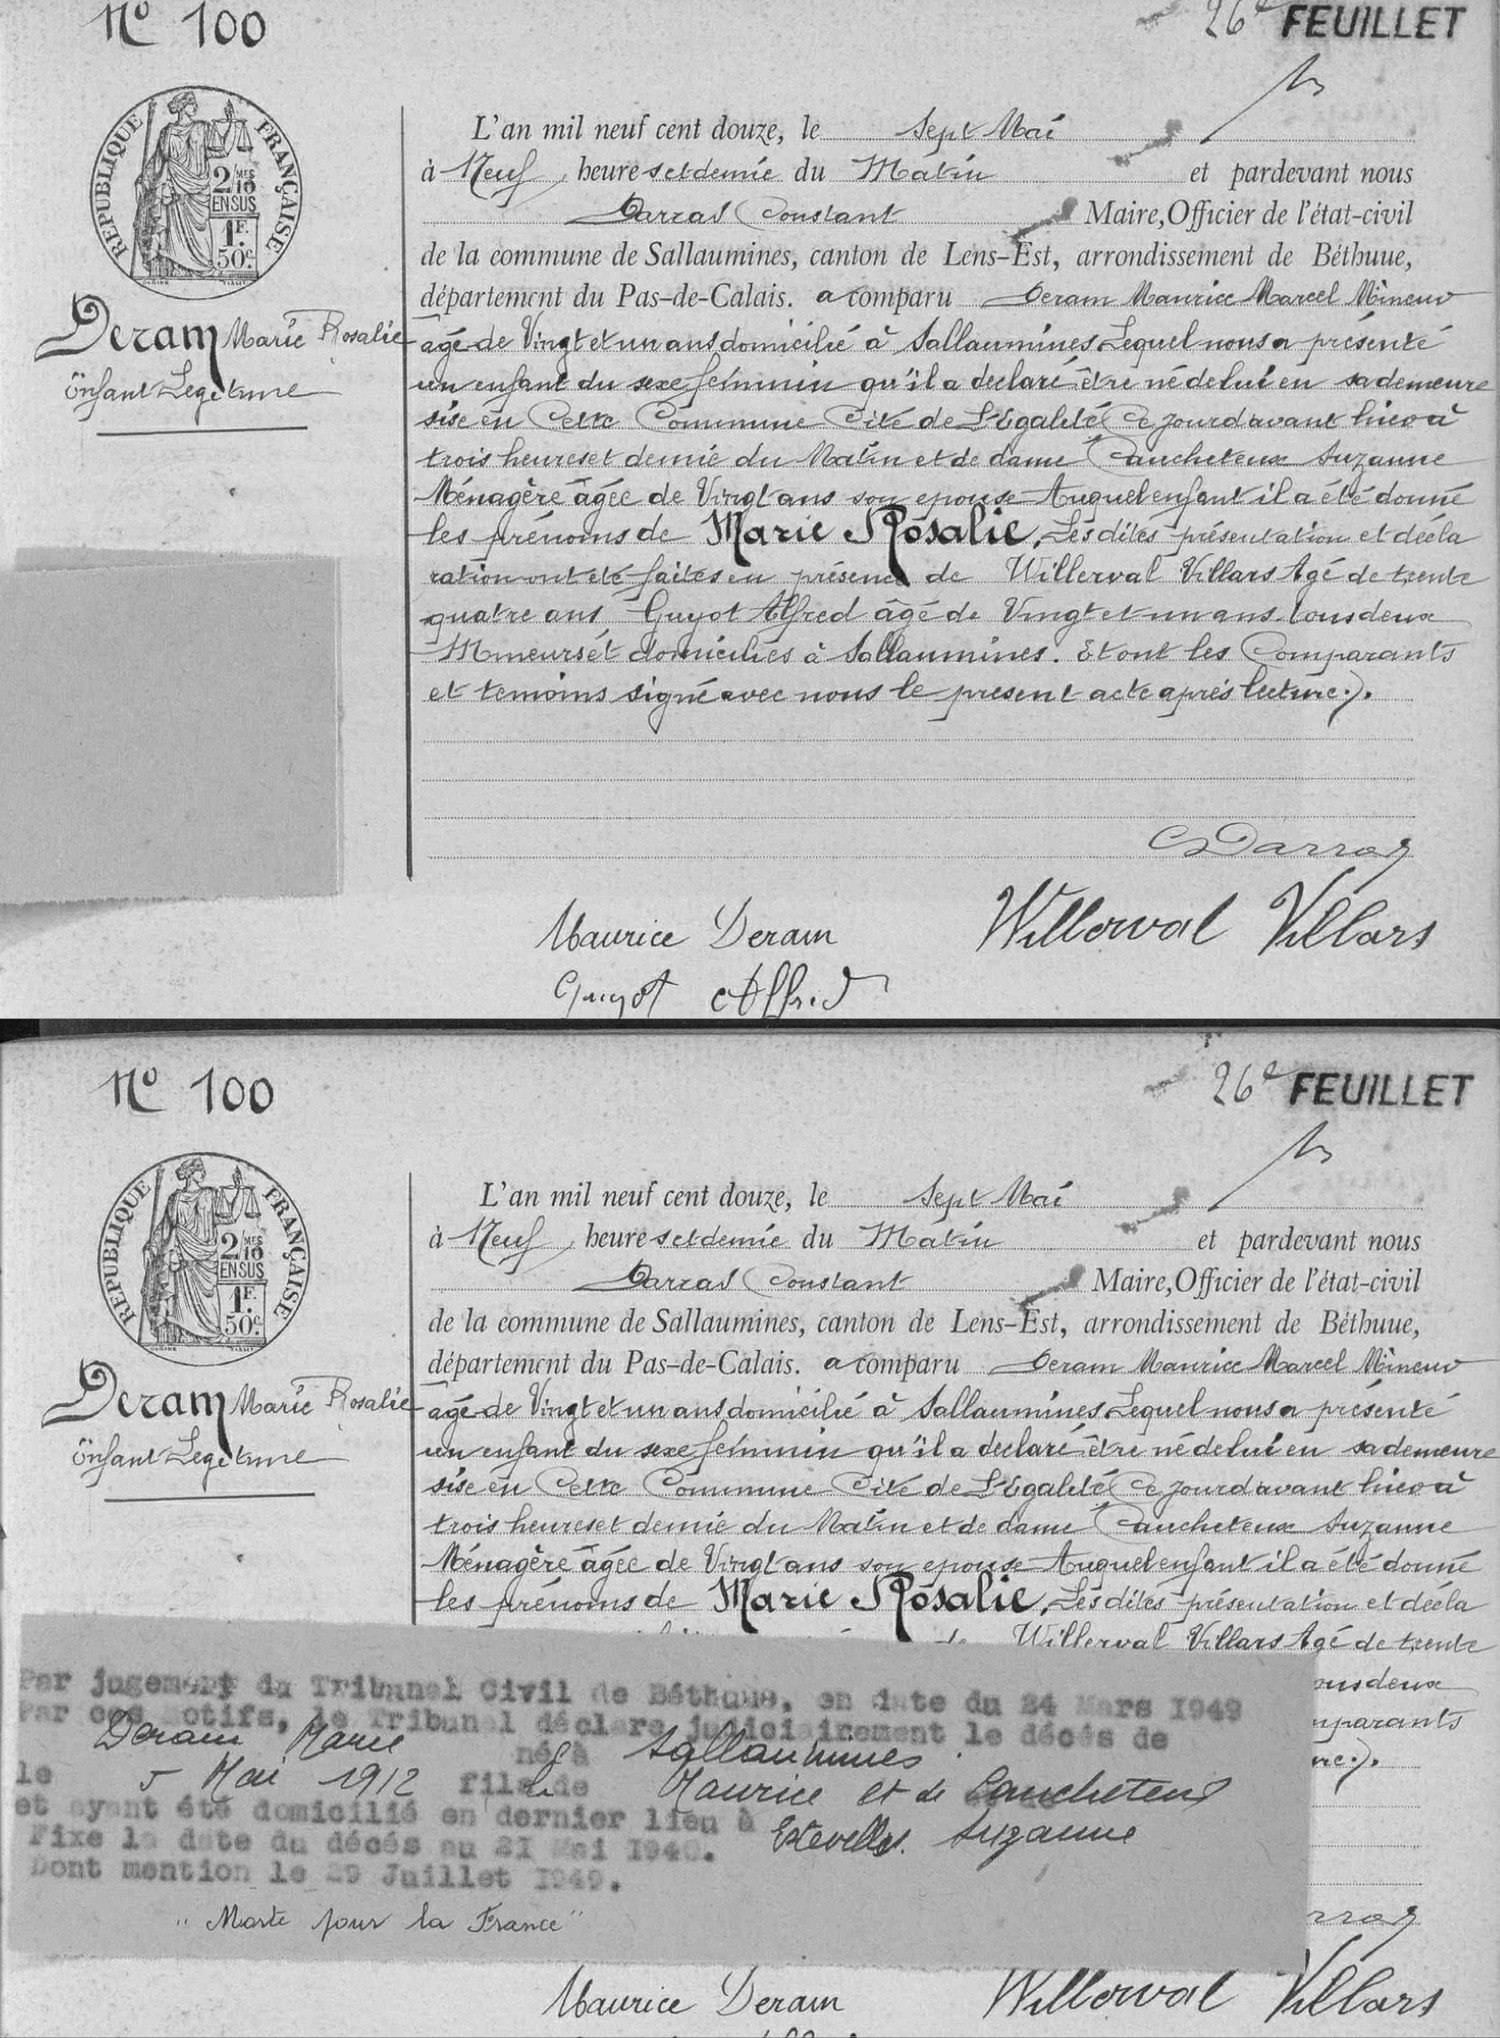 No 100
26e FEUILLET
RÉPUBLIQUE FRANÇAISE
2/MES 10
EN SUS
1F.
50c.
L'an mil neuf cent douze, le Sept Mai
à Neuf heures et demie du Matin et pardevant nous
Darras Constant Maire, Officier de l'état-civil
de la commune de Sallaumines, canton de Lens-Est, arrondissement de Béthuue,
département du Pas-de-Calais. a comparu Deram Maurice Marcel Mineur
Deram Marie Rosalie
Enfant Legitime
agé de Vingt et un ans domicilié à Sallaumines Lequel nous a présenté
un enfant du sexe féminin qu'il a declaré être né de lui en sa demeure
sise en Cette Commune Cité de L'Egalité Ce jour d'avant hier à
trois heures et demie du Matin et de dame Caucheteux Suzanne
Ménagère âgée de Vingt ans son epouse Auquel enfant il a été donné
les prénoms de Marie Rosalie. Les dites présentation et décla
ration ont été faites en présence de Willerval Villars Agé de trente
quatre ans Guyot Alfred âgé de Vingt et un ans tous deux
Mineurs et domiciliés à Sallaumines. Et ont les Comparants
et temoins signé avec nous le present acte après lecture.).
C Darras
Maurice Deram Willerval Villars
Guyot Alfred
No 100
26e FEUILLET
RÉPUBLIQUE FRANÇAISE
2/MES 10
EN SUS
1F.
50c.
L'an mil neuf cent douze, le Sept Mai
à Neuf heures et demie du Matin et pardevant nous
Darras Constant Maire, Officier de l'état-civil
de la commune de Sallaumines, canton de Lens-Est, arrondissement de Béthuue,
département du Pas-de-Calais. a comparu Deram Maurice Marcel Mineur
Deram Marie Rosalie
Enfant Legitime
agé de Vingt et un ans domicilié à Sallaumines Lequel nous a présenté
un enfant du sexe féminin qu'il a declaré être né de lui en sa demeure
sise en Cette Commune Cité de L'Egalité Ce jour d'avant hier à
trois heures et demie du Matin et de dame Caucheteux Suzanne
Ménagère âgée de Vingt ans son epouse Auquel enfant il a été donné
les prénoms de Marie Rosalie. Les dites présentation et décla
de Willerval Villars Agé de trente
ous deux
mparants
re.).
Par jugement du Tribunal Civil de Béthune, en date du 24 Mars 1949
Par ces motifs, le Tribunal déclare judiciairement le décès de
Deram Marie né à Sallaumines
le 5 Mai 1912 fils de Maurice et de Caucheteux
et ayant été domicilié en dernier lieu à Estevelles. Suzanne
Fixe la date du décès au 31 Mai 1940.
Dont mention le 29 Juillet 1949.
"Morte pour la France"
rras
Maurice Deram Willerval Villars